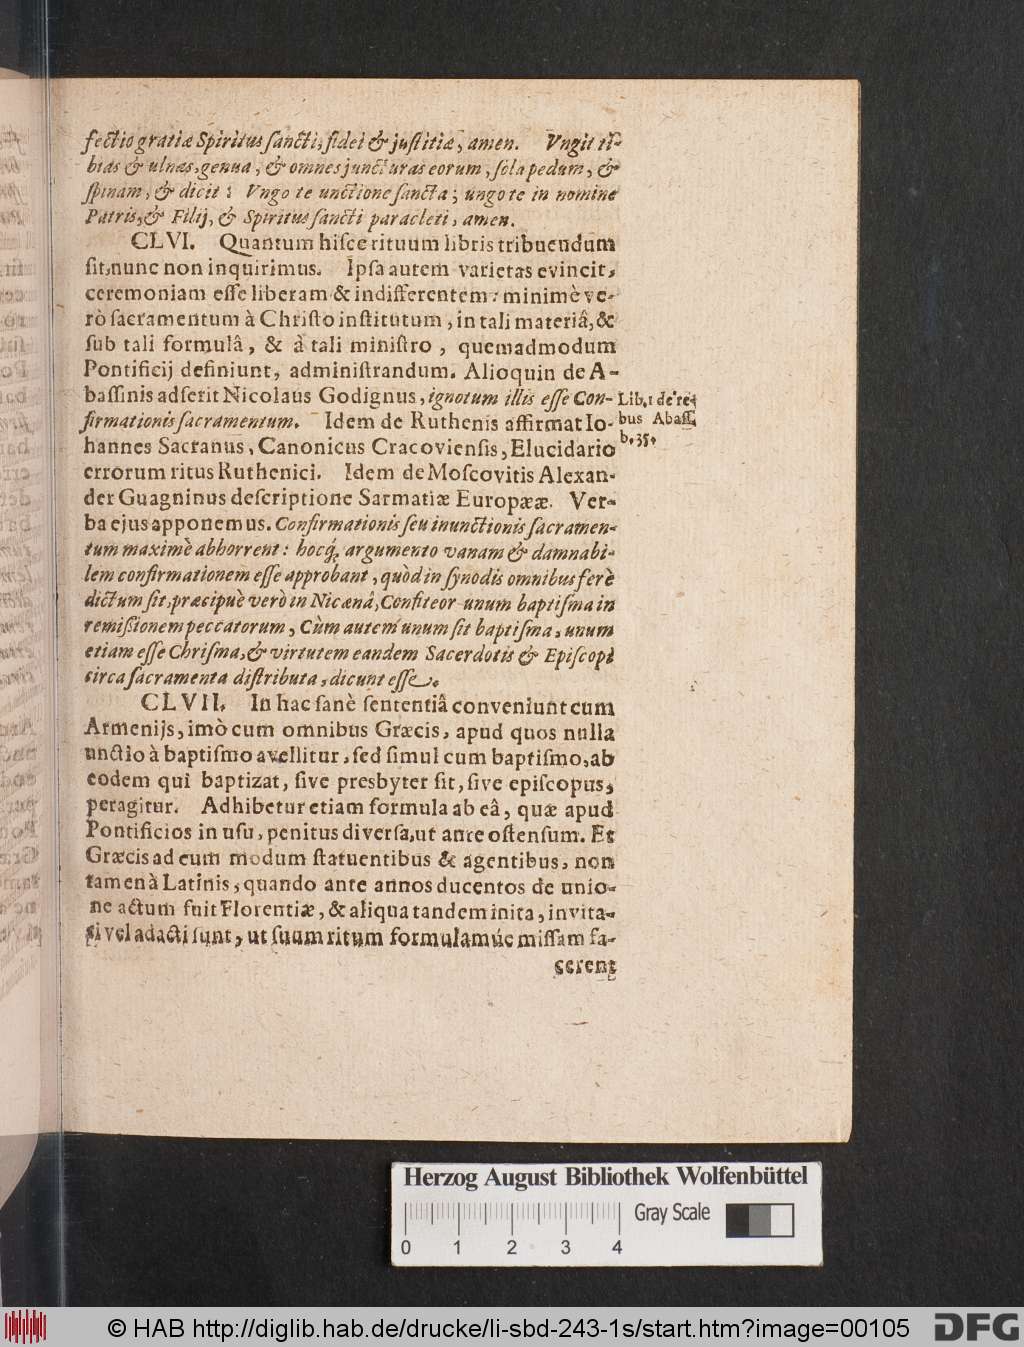 fectio gratiæ Spiritus sancti, fidei & justitiæ, amen. Vngit ti-
bias & ulnas, genua, & omnes juncturas eorum, sola pedum, &
spinam, & dicit: Vngo te unctione sancta; ungo te in nomine
Patris, & Filij, & Spiritus sancti paracleti, amen.
CLVI. Quantum hisce rituum libris tribuendum
sit, nunc non inquirimus. Ipsa autem varietas evincit,
ceremoniam esse liberam & indifferentem: minimè ve-
rò sacramentum à Christo institutum, in tali materiâ, &
sub tali formulâ, & à tali ministro, quemadmodum
Pontificij definiunt, administrandum. Alioquin de A-
bassinis adserit Nicolaus Godignus, ignotum illis esse Con-
firmationis sacramentum. Idem de Ruthenis affirmat Io-
hannes Sacranus, Canonicus Cracoviensis, Elucidario
errorum ritus Ruthenici. Idem de Moscovitis Alexan-
der Guagninus descriptione Sarmatiæ Europææ. Ver-
ba ejus apponemus. Confirmationis seu inunctionis sacramen-
tum maximè abhorrent: hocq; argumento vanam & damnabi-
lem confirmationem esse approbant, quòd in synodis omnibus ferè
dictum sit, præcipuè verò in Nicænâ, Confiteor unum baptisma in
remissionem peccatorum, Cùm autem unum sit baptisma, unum
etiam esse Chrisma, & virtutem eandem Sacerdotis & Episcopi
circa sacramenta distributa, dicunt esse.
CLVII. In hac sanè sententiâ conveniunt cum
Armenijs, imò cum omnibus Græcis, apud quos nulla
unctio à baptismo avellitur, sed simul cum baptismo, ab
eodem qui baptizat, sive presbyter sit, sive episcopus,
peragitur. Adhibetur etiam formula ab eâ, quæ apud
Pontificios in usu, penitus diversa, ut ante ostensum. Et
Græcis ad eum modum statuentibus & agentibus, non
tamen à Latinis, quando ante annos ducentos de unio-
ne actum fuit Florentiæ, & aliqua tandem inita, invita-
ti vel adacti sunt, ut suum ritum formulamúe missam fa-
cerent
Lib. 1 de re-
bus Abass.
b. 35.
Herzog August Bibliothek Wolfenbüttel
Gray Scale
0 1 2 3 4
© HAB http://diglib.hab.de/drucke/li-sbd-243-1s/start.htm?image=00105
DFG